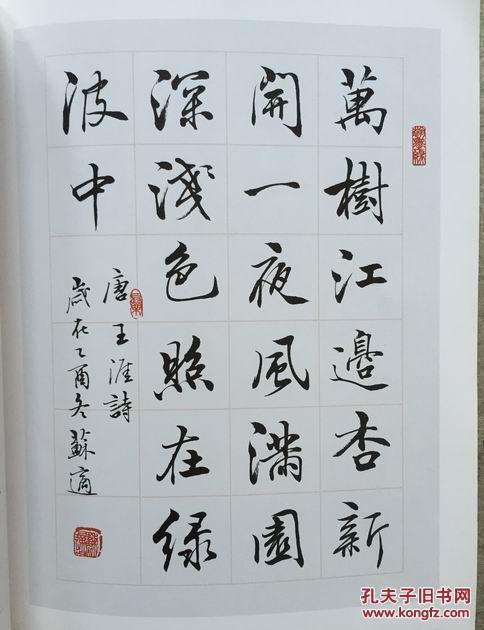 萬樹江邊杏新
開一夜風滿園
深淺色照在綠
波中
唐王涯詩
歲在乙酉冬蘇適
孔夫子旧书网
www.kongfz.com